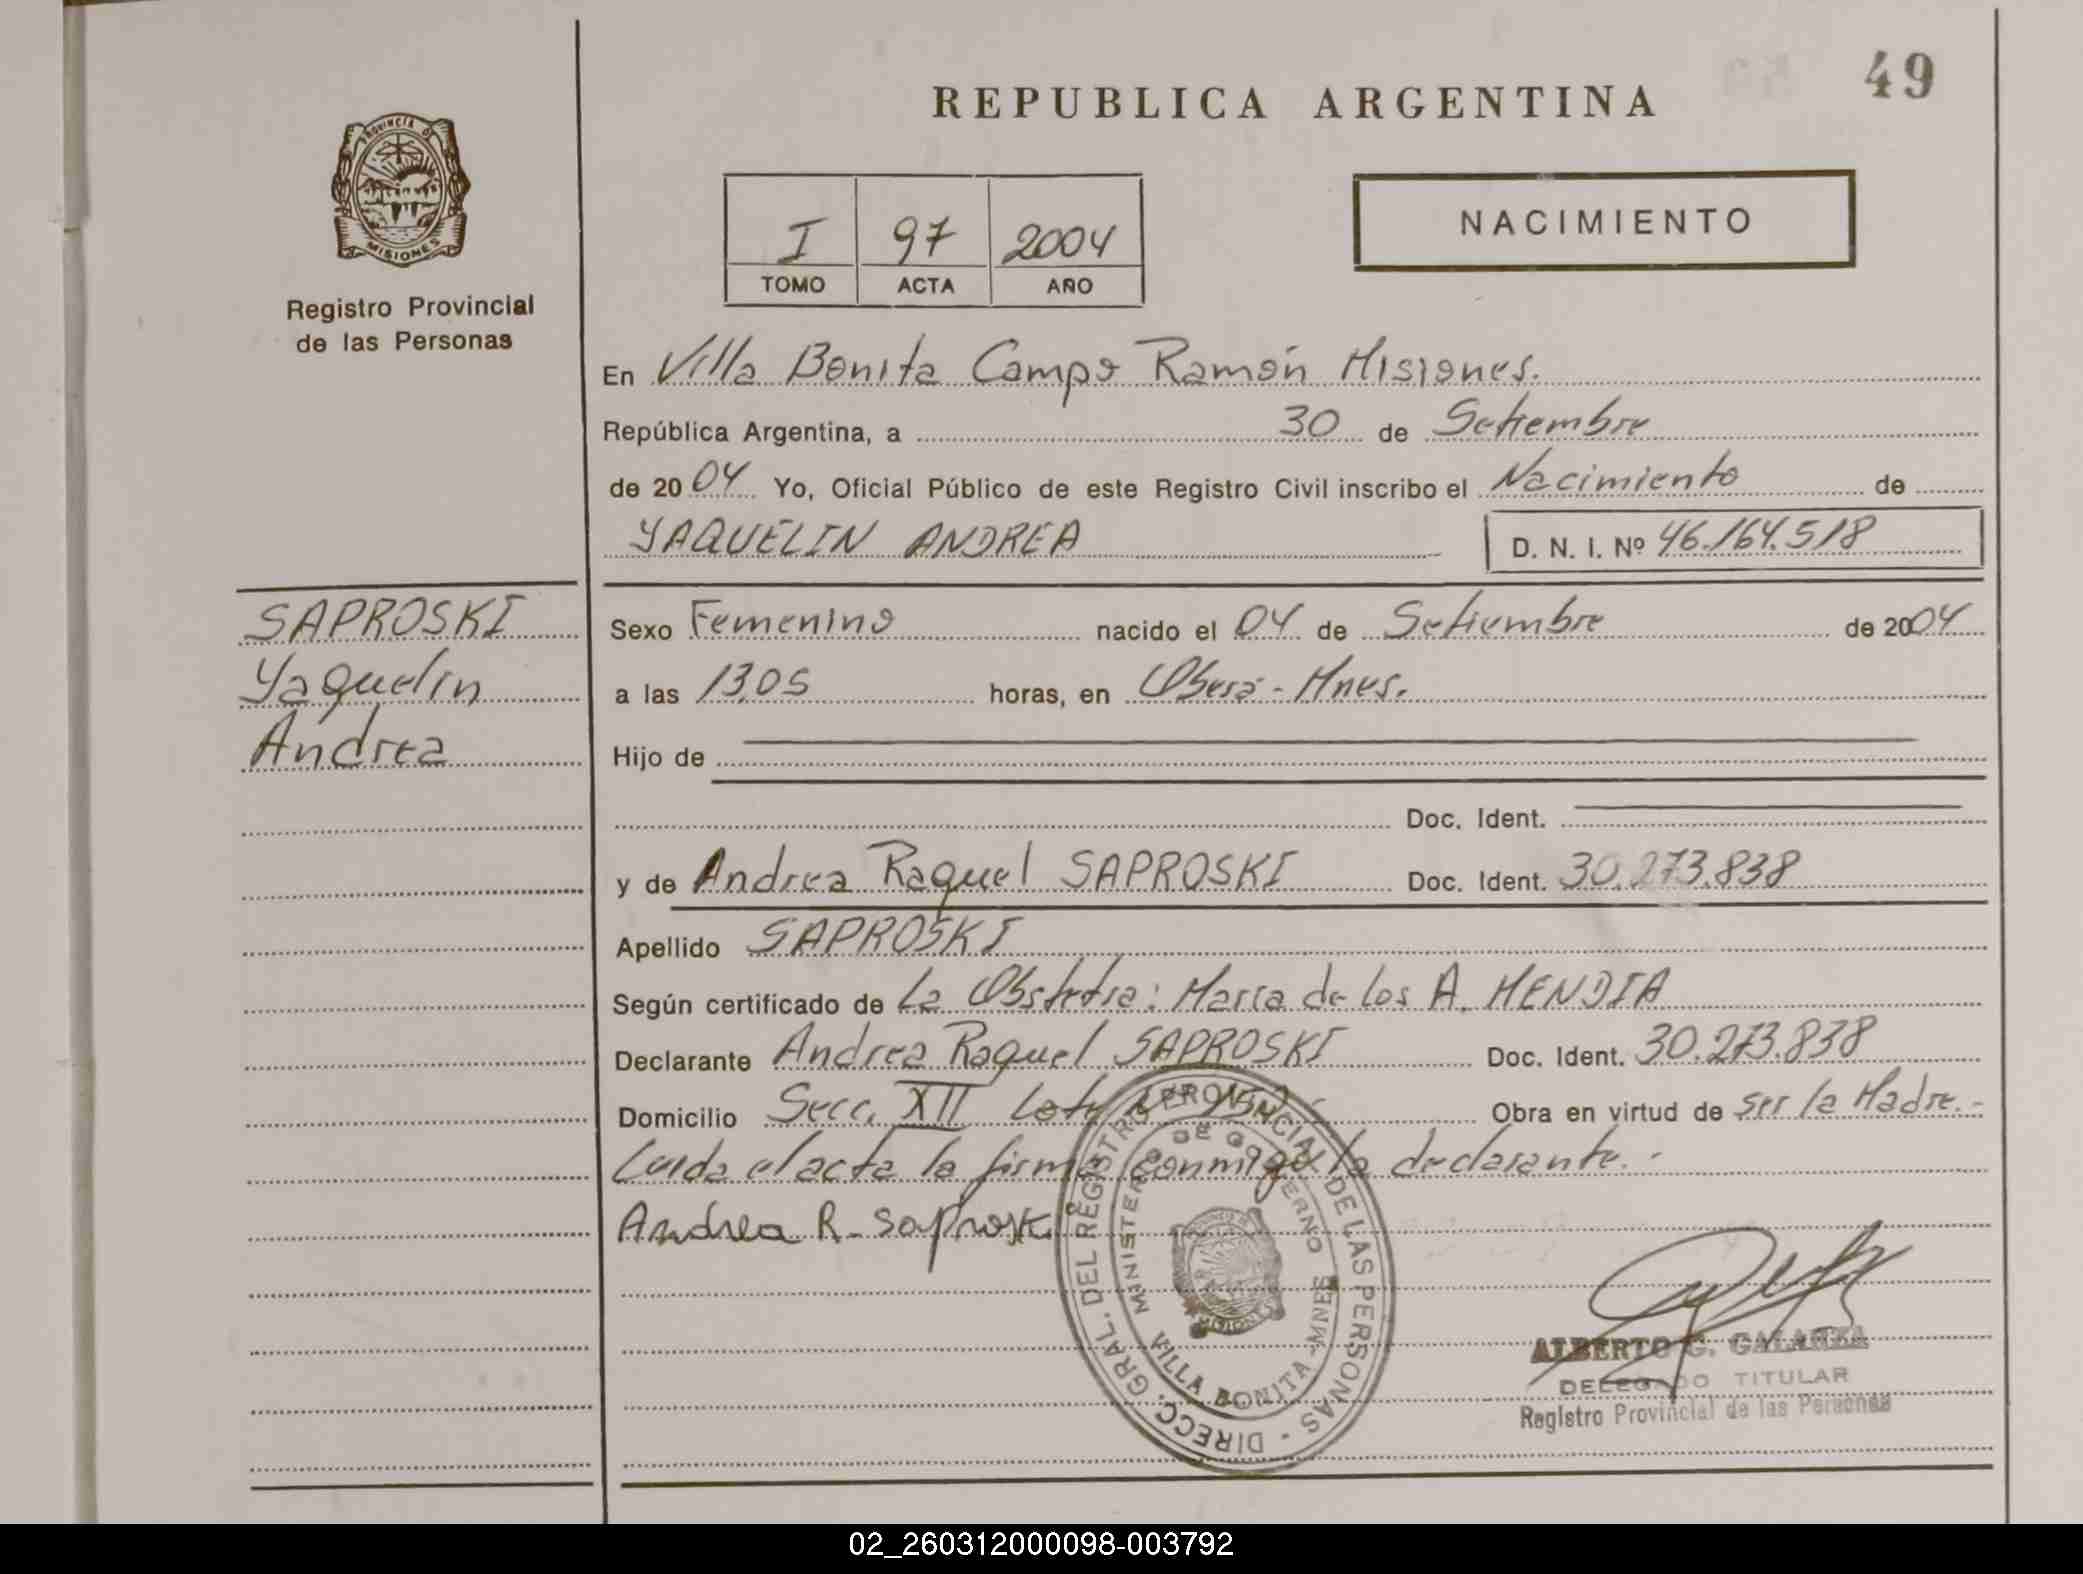 49
REPUBLICA ARGENTINA
PROVINCIA D
MISIONES
Registro Provincial
de las Personas
NACIMIENTO
I 97 2004
TOMO ACTA AÑO
En Villa Bonita Campo Ramón Misiones.
República Argentina, a 30 de Setiembre
de 2004 Yo, Oficial Público de este Registro Civil inscribo el Nacimiento de
YAQUELIN ANDREA D. N. I. Nº 46.164.518
SAPROSKI
Yaquelin
Andrea
Sexo Femenino nacido el 04 de Setiembre de 2004
a las 13,05 horas, en Oberá - Mnes.
Hijo de
Doc. Ident.
y de Andrea Raquel SAPROSKI Doc. Ident. 30.273.838
Apellido SAPROSKI
Según certificado de La Obstetra: María de los A. MENDIA
Declarante Andrea Raquel SAPROSKI Doc. Ident. 30.273.838
Domicilio Secc. XII Lote Obra en virtud de ser la Madre.-
Leida el acta la firma conmigo la declarante.-
Andrea R. Saproski
DIRECC. GRAL. DEL REGISTRO PROVINCIAL DE LAS PERSONAS -
MINISTERIO DE GOBIERNO
VILLA BONITA - MNES
MISIONES
ALBERTO G. GALARZA
DELEGADO TITULAR
Registro Provincial de las Personas
02_260312000098-003792